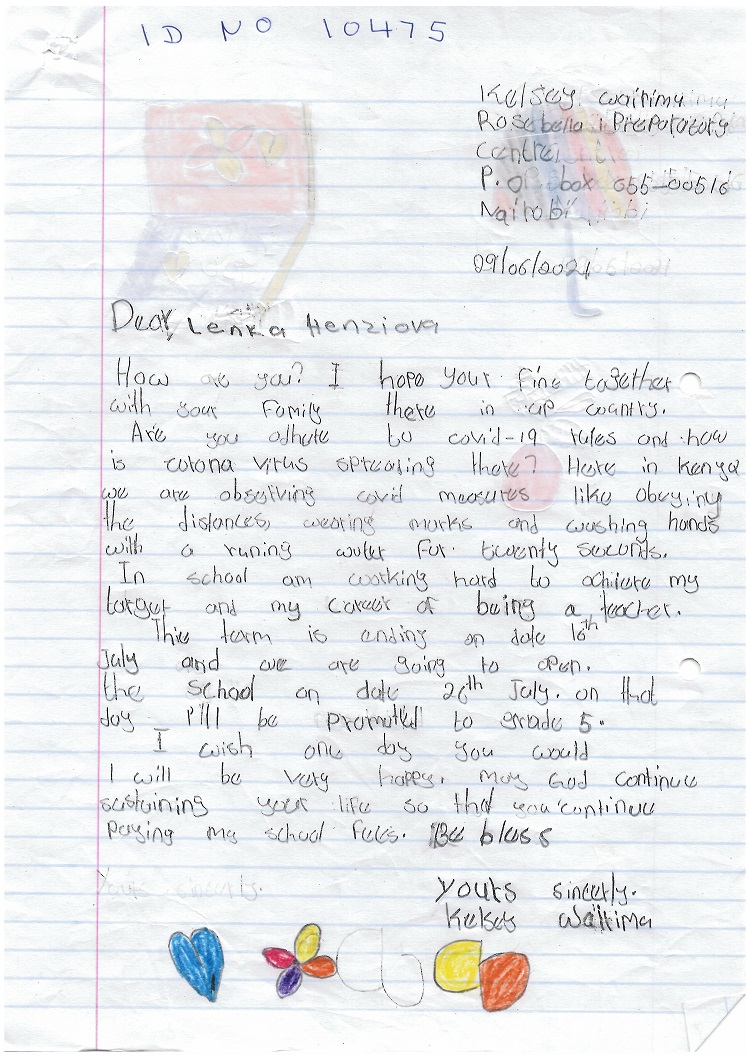 ID NO 10475
Kelsey wairimu
Rosebella Preparatory
Centre
P. o box 655-00516
Nairobi
09/06/2021
Dear, Lenka Henziova
How are you? I hope your fine together
with your Family there in up country.
Are you adhere to covid-19 rules and how
is corona virus spreading there? Here in kenya
we are observing covid measures like obeying
the distances, wearing marks and washing hands
with a runing water for twenty seconds.
In school am working hard to achieve my
target and my career of being a teacher.
This term is ending on date 16th
July and we are going to open.
the school on date 26th July. on that
day I'll be promoted to grade 5.
I wish one day you would
I will be very happy. may God continue
sustaining your life so that you continue
paying my school fees. Be bless
yours sincerly.
Yours sincerly.
Kelsey Wairima